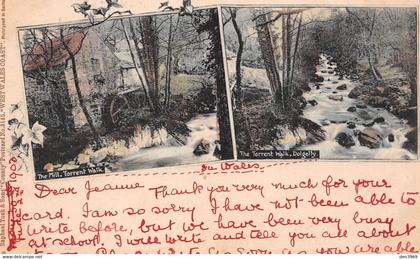 The Mill, Torrent Walk.
The Torrent Walk, Dolgelly.
in Wales
Dear Jeanne Thank you very much for your
card. I am so sorry I have not been able to
write before, but we have been very busy
at school. I will write and tell you all about
as you are able
Raphael Tuck & Sons' "County" Postcard
"WEST WALES COAST"